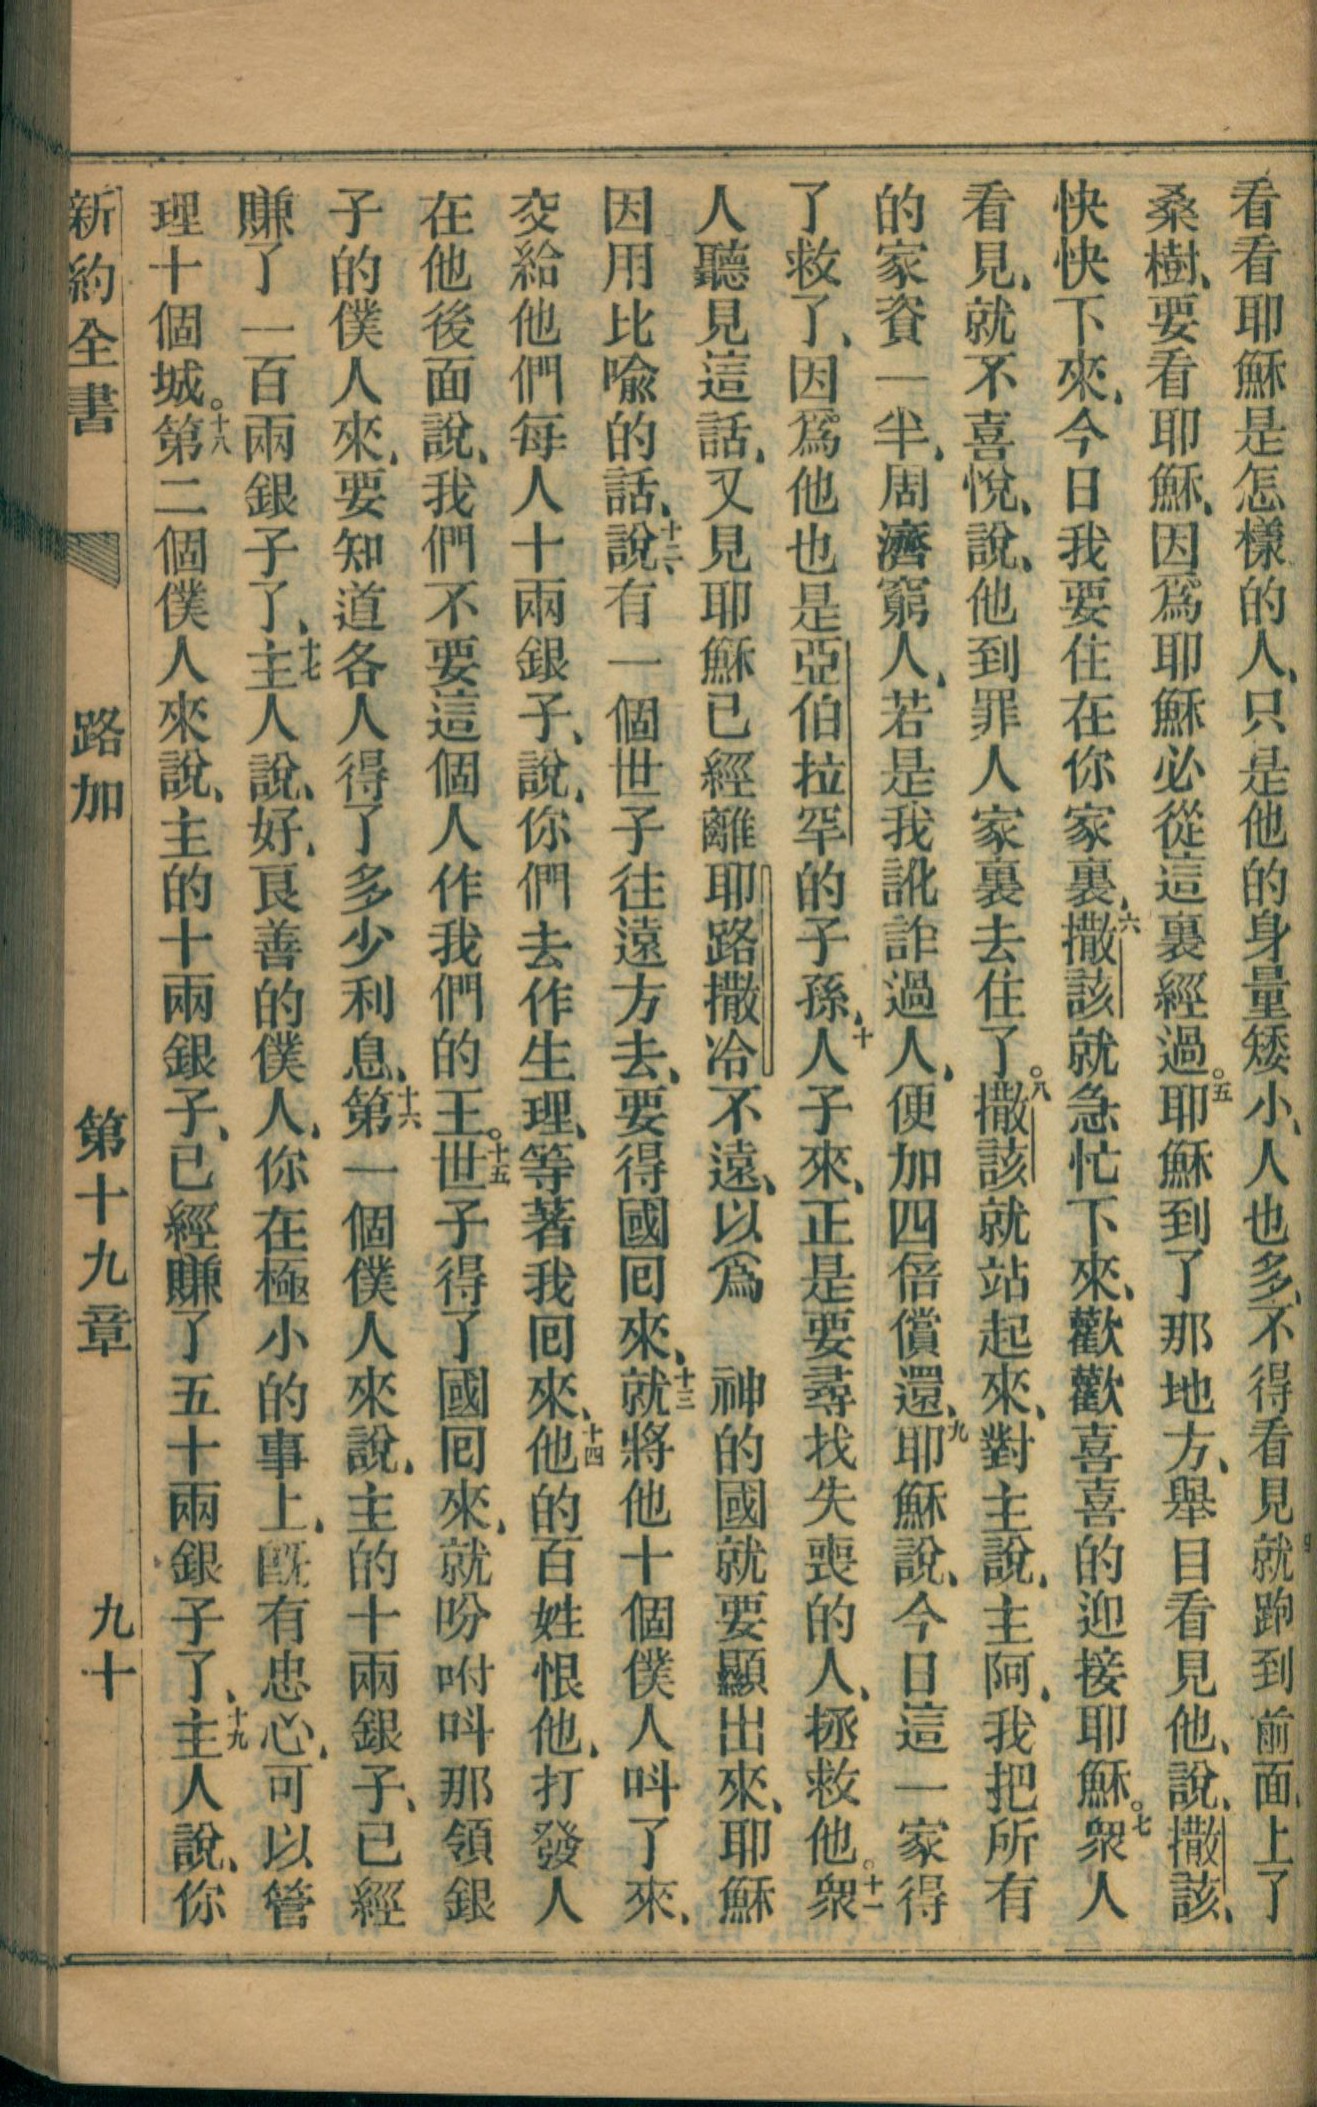 看看耶穌是怎樣的人、只是他的身量矮小、人也多、不得看見、四就跑到前面、上了
桑樹、要看耶穌、因爲耶穌必從這裏經過。五耶穌到了那地方、舉目看見他、說、撒該、
快快下來、今日我要住在你家裏、六撒該就急忙下來、歡歡喜喜的迎接耶穌。七衆人
看見、就不喜悅、說、他到罪人家裏去住了。八撒該就站起來、對主說、主阿、我把所有
的家資一半、周濟窮人、若是我訛詐過人、便加四倍償還、九耶穌說、今日這一家得
了救了、因爲他也是亞伯拉罕的子孫、十人子來、正是要尋找失喪的人、拯救他。十一衆
人聽見這話、又見耶穌已經離耶路撒冷不遠、以爲　神的國就要顯出來、耶穌
因用比喩的話、十二說、有一個世子往遠方去、要得國囘來、十三就將他十個僕人呌了來、
交給他們每人十兩銀子、說、你們去作生理、等著我囘來、十四他的百姓恨他、打發人
在他後面說、我們不要這個人作我們的王。十五世子得了國囘來、就吩咐呌那領銀
子的僕人來、要知道各人得了多少利息、十六第一個僕人來說、主的十兩銀子、已經
賺了一百兩銀子了、十七主人說、好、良善的僕人、你在極小的事上、旣有忠心、可以管
理十個城。十八第二個僕人來說、主的十兩銀子、已經賺了五十兩銀子了、十九主人說、你
新約全書　路加　第十九章　九十